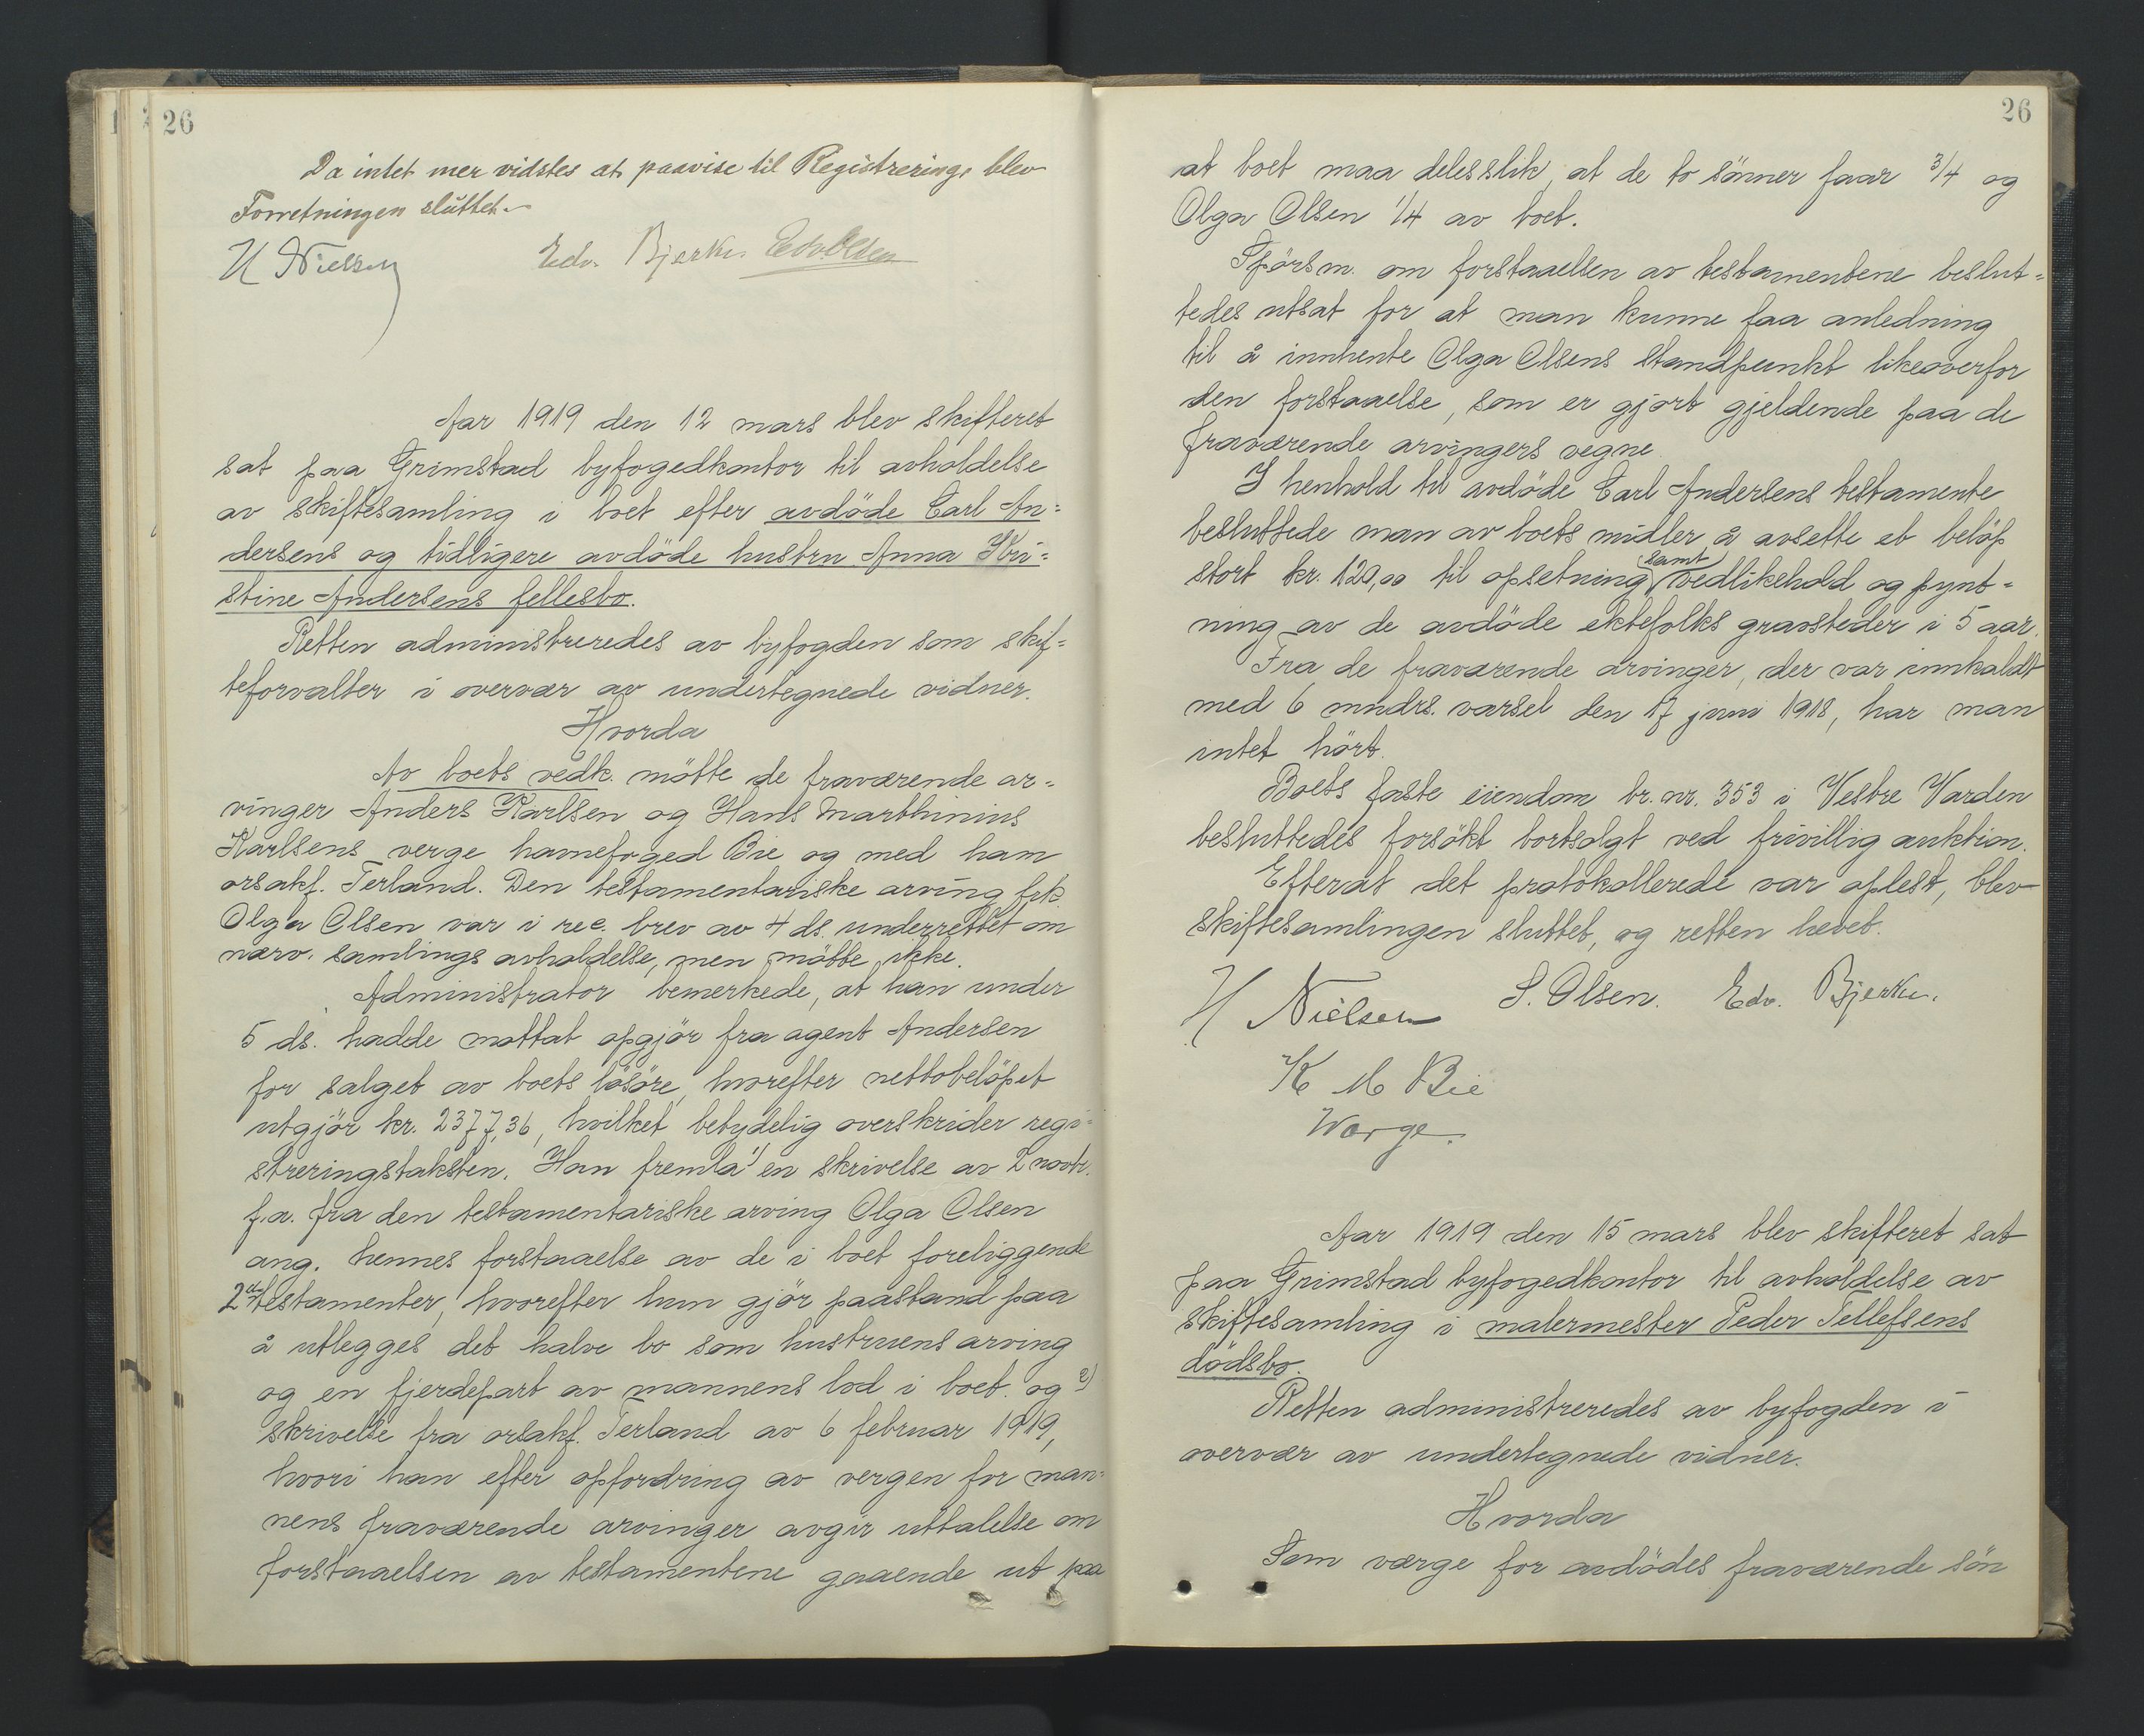 26
Da intet mer vidstes at paavise til Registrering, blev
Forretningen sluttet.
N Nielsen Edv. Bjerke. Edv Olsen
Aar 1919 den 12 mars blev skifteret
sat paa Grimstad byfogedkontor til avholdelse
av skiftesamling i boet efter avdöde Carl An=
dersens og tidligere avdöde hustru Anna Kri=
stine Andersens fellesbo.
Retten administreredes av byfogden som skif=
teforvalter i overvær av undertegnede vidner.
Hvorda
Av boets vedk. mötte de fraværende ar=
vinger Anders Karlsen og Hans Marthinius
Karlsens verge havnefoged Bie og med ham
orsakf. Terland. Den testamentariske arving frk.
Olga Olsen var i rec. brev av 4 ds. underrettet om
nærv. samlings avholdelse, men mötte ikke.
Administrator bemerkede, at han under
5 ds. hadde mottat opgjör fra agent Andersen
for salget av boets lösöre, hvorefter nettobelöpet
utgjör kr. 2377,36, hvilket betydelig overskrider regi=
streringstaksten. Han fremla 1) en skrivelse av 2 novbr.
f.a. fra den testamentariske arving Olga Olsen
ang. hennes forstaaelse av de i boet foreliggende
2de testamenter, hvorefter hun gjör paastand paa
å utlegges det halve bo som hustruens arving
og en fjerdepart av mannens lod i boet. og 2)
skrivelse fra orsakf. Terland av 6 februar 1919,
hvori han efter opfordring av vergen for man=
nens fraværende arvinger avgir uttalelse om
forstaaelsen av testamentene gaaende ut paa
26
at boet maa deles slik, at de to sönner faar 3/4 og
Olga Olsen 1/4 av boet.
Spörsm. om forstaaelsen av testamentene beslut=
tedes utsat for at man kunne faa anledning
til å innhente Olga Olsens standpunkt likeoverfor
den forstaaelse, som er gjort gjeldende paa de
fraværende arvingers vegne.
I henhold til avdöde Carl Andersens testamente
besluttede man av boets midler å avsette et belöp
stort kr. 120,00 til opsetning samt vedlikehold og pynt=
ning av de avdöde ektefolks gravsteder i 5 aar.
Fra de fraværende arvinger, der var innkaldt
med 6 mndrs. varsel den 17 juni 1918, har man
intet hört.
Boets faste eiendom br. nr. 353 i Vestre Varden
besluttedes forsökt bortsolgt ved frivillig auktion.
Efterat det protokollerede var oplest, blev
skiftesamlingen sluttet, og retten hevet.
N Nielsen S. Olsen. Edv. Bjerke.
K M Bie
Værge.
Aar 1919 den 15 mars blev skifteret sat
paa Grimstad byfogedkontor til avholdelse av
skiftesamling i malermester Peder Tellefsens
dödsbo.
Retten administreredes av byfogden i
overvær av undertegnede vidner.
Hvorda
Som værge for avdödes fraværende sön